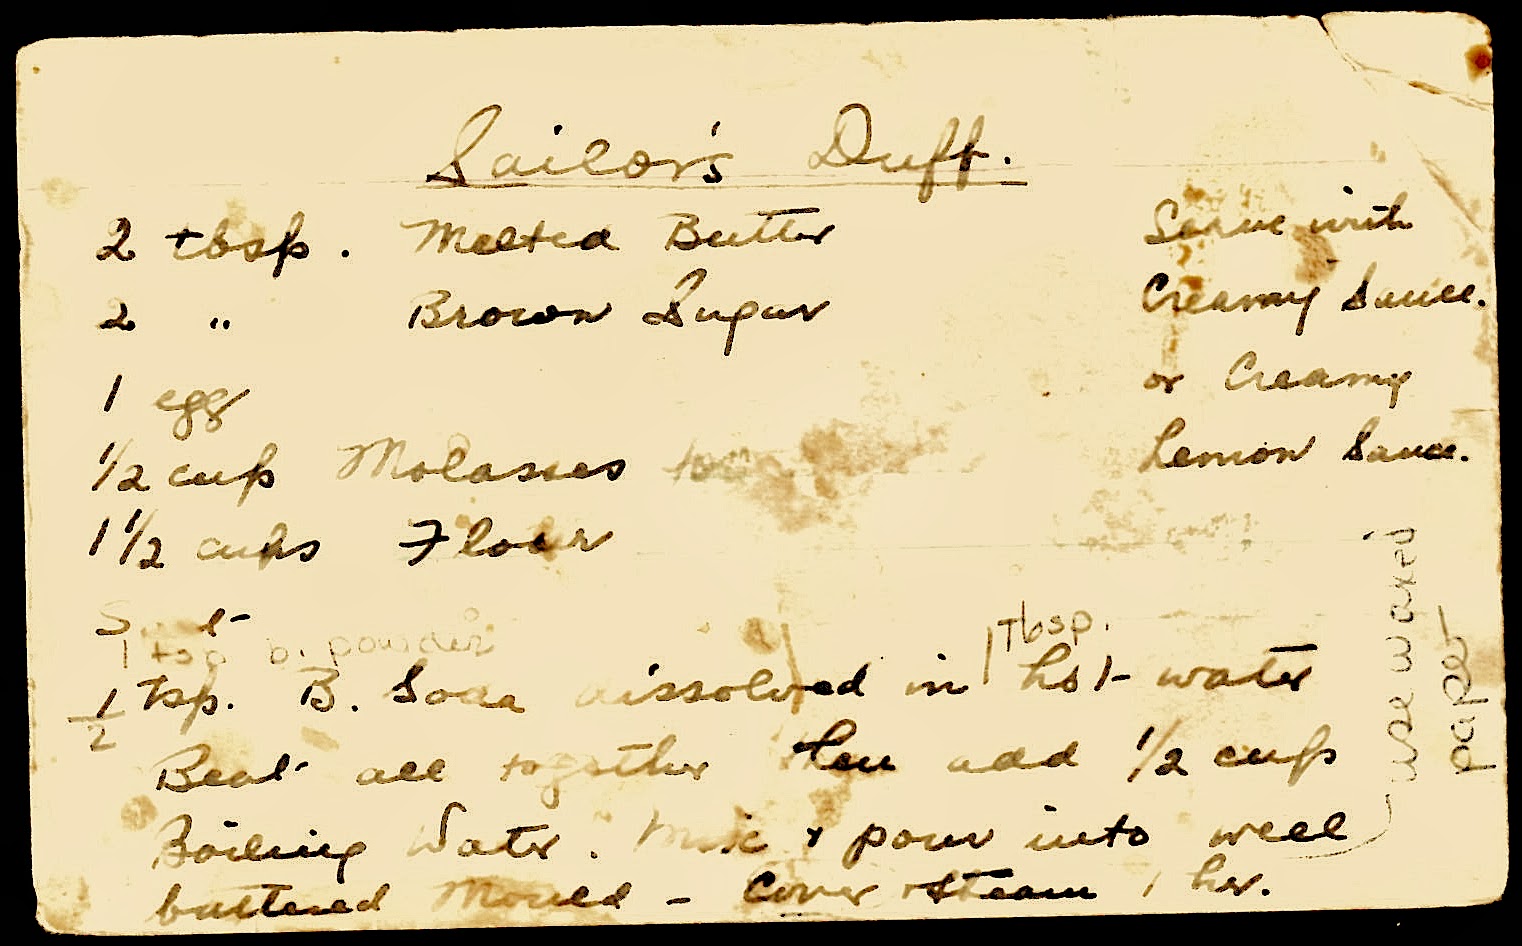 Sailor's Duff.
2 tbsp. Melted Butter
2 " Brown Sugar
1 egg
1/2 cup Molasses
1 1/2 cups Flour
1 tsp b. powder
1/2 tsp. B. Soda dissolved in 1 Tbsp. hot water
Beat all together then add 1/2 cup
Boiling Water. Mix & pour into well
buttered Mould - Cover & steam 1 hr.
Serve with
Creamy Sauce.
or Creamy
Lemon Sauce.
use waxed
paper